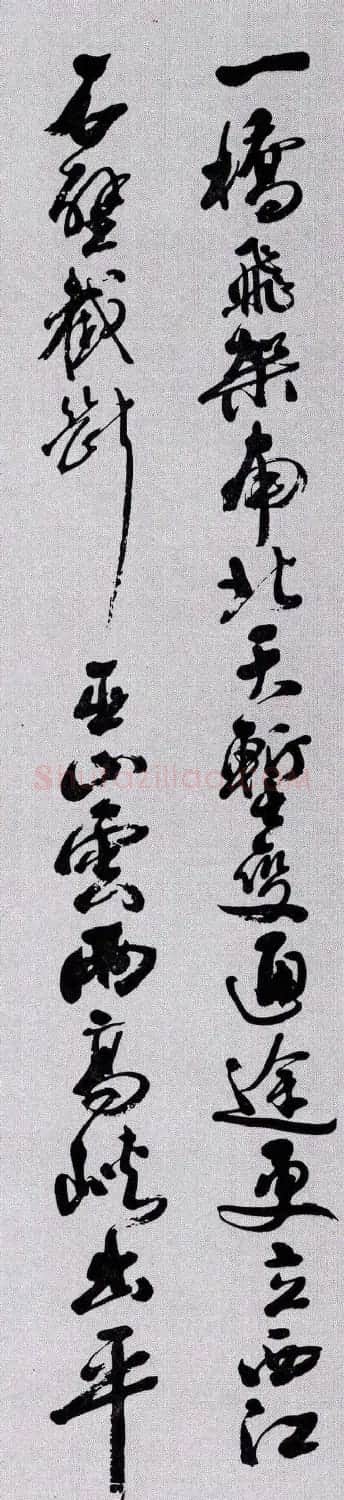 一橋飛架南北天塹变通途更立西江
石壁截断巫山雲雨高峡出平